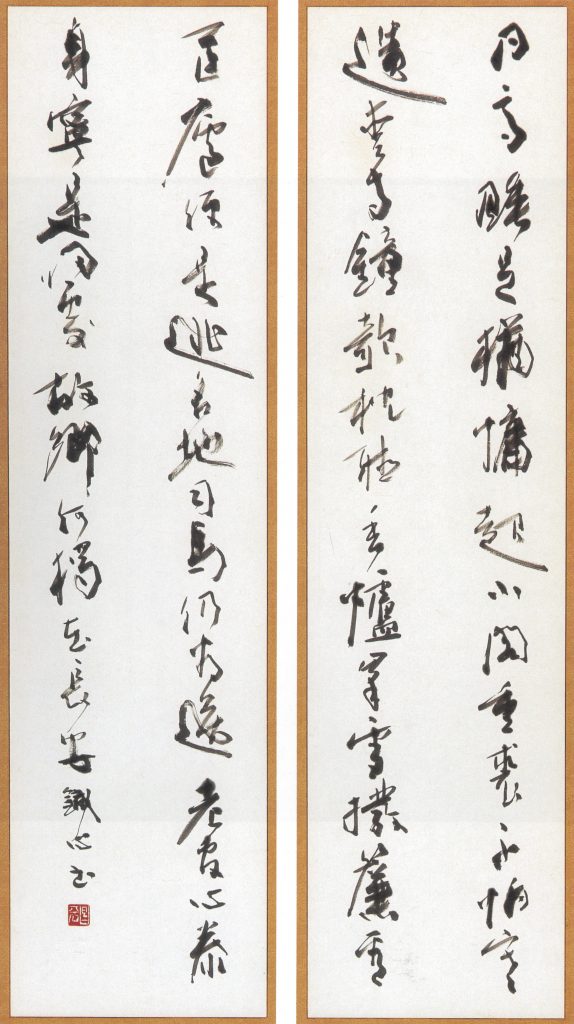 日高睡足猶慵起小閣重裘不怕寒
遺愛寺鐘欹枕聽香爐峯雪撥簾看
匡廬便是逃名地司馬仍為送老官心泰
身寧是歸處故鄉何獨在長安 鐵心書